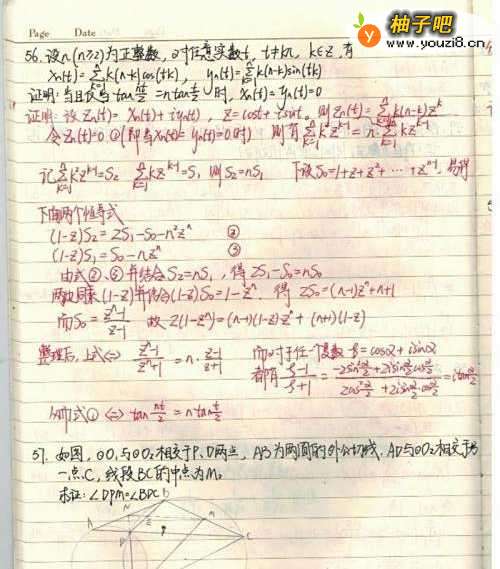 柚子吧
www.youzi8.cn
Page Date
56. 设n(n≥2)为正整数, 对任意实数t, t≠kπ, k∈Z, 有
xn(t)=∑k(n-k)cos(tk), yn(t)=∑k(n-k)sin(tk)
证明:当且仅当 tan nt/2 = n tan t/2 时, xn(t)=yn(t)=0
证明: 设 Zn(t)= xn(t)+iyn(t), Z=cost+isint, 则 Zn(t)=∑k(n-k)z^k
令Zn(t)=0 ①(即当xn(t)=yn(t)=0时) 则有 ∑k²z^k-1 = n·∑kz^k-1
记∑k²z^k-1=S₂ ∑kz^k-1=S₁ 则 S₂=nS₁ 下设S₀=1+z+z²+…+z^n-1, 易得
下面两个恒等式
(1-z)S₂=2S₁-S₀-n²z^n ②
(1-z)S₁=S₀-nz^n ③
由式②、③并结合S₂=nS₁, 得 2S₁-S₀=nS₀
两边同乘(1-z)并结合(1-z)S₀=1-z^n, 得 2S₀=(n-1)z^n+n+1
而S₀=z^n-1/z-1 故 2(1-z^n)=(n-1)(1-z)z^n+(n+1)(1-z)
整理后, 上式⇔ z^n-1/z^n+1 = n·z-1/z+1 而对于任一复数 ξ=cosα+isinα
都有 ξ-1/ξ+1 = -2sin²α/2+2isinα/2cosα/2 / 2cos²α/2+2isinα/2cosα/2 = itanα/2
例式①⇔ tan nt/2 = n tan t/2
57. 如图, ⊙O₁与⊙O₂相交于P、D两点, AB为两圆的外公切线, AD与⊙O₂相交于另
一点C, 线段BC的中点为M。
求证: ∠DPM=∠BDC
b
N
A
E
M
D
P
C